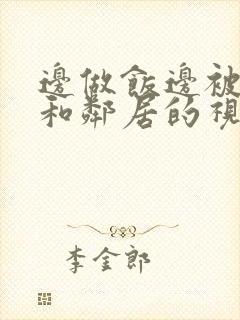 邊做飯邊被
和鄰居的視
李金郎